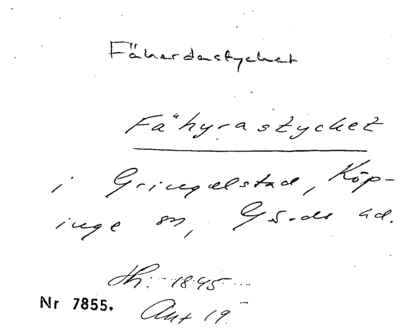 Fäherdastycket
Fähyrastycket
i Gringelstad, Köp-
inge sn, Gä-ds hd.
Hh: 1845
Nr 7855. Akt 19.